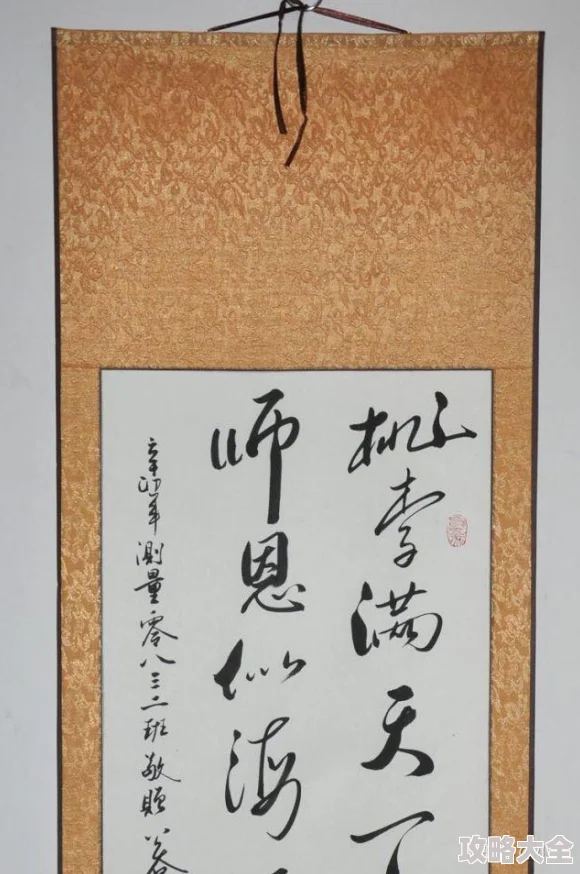 桃李满天下
师恩似海
辛卯年测量零八三二班敬赠
攻略大全